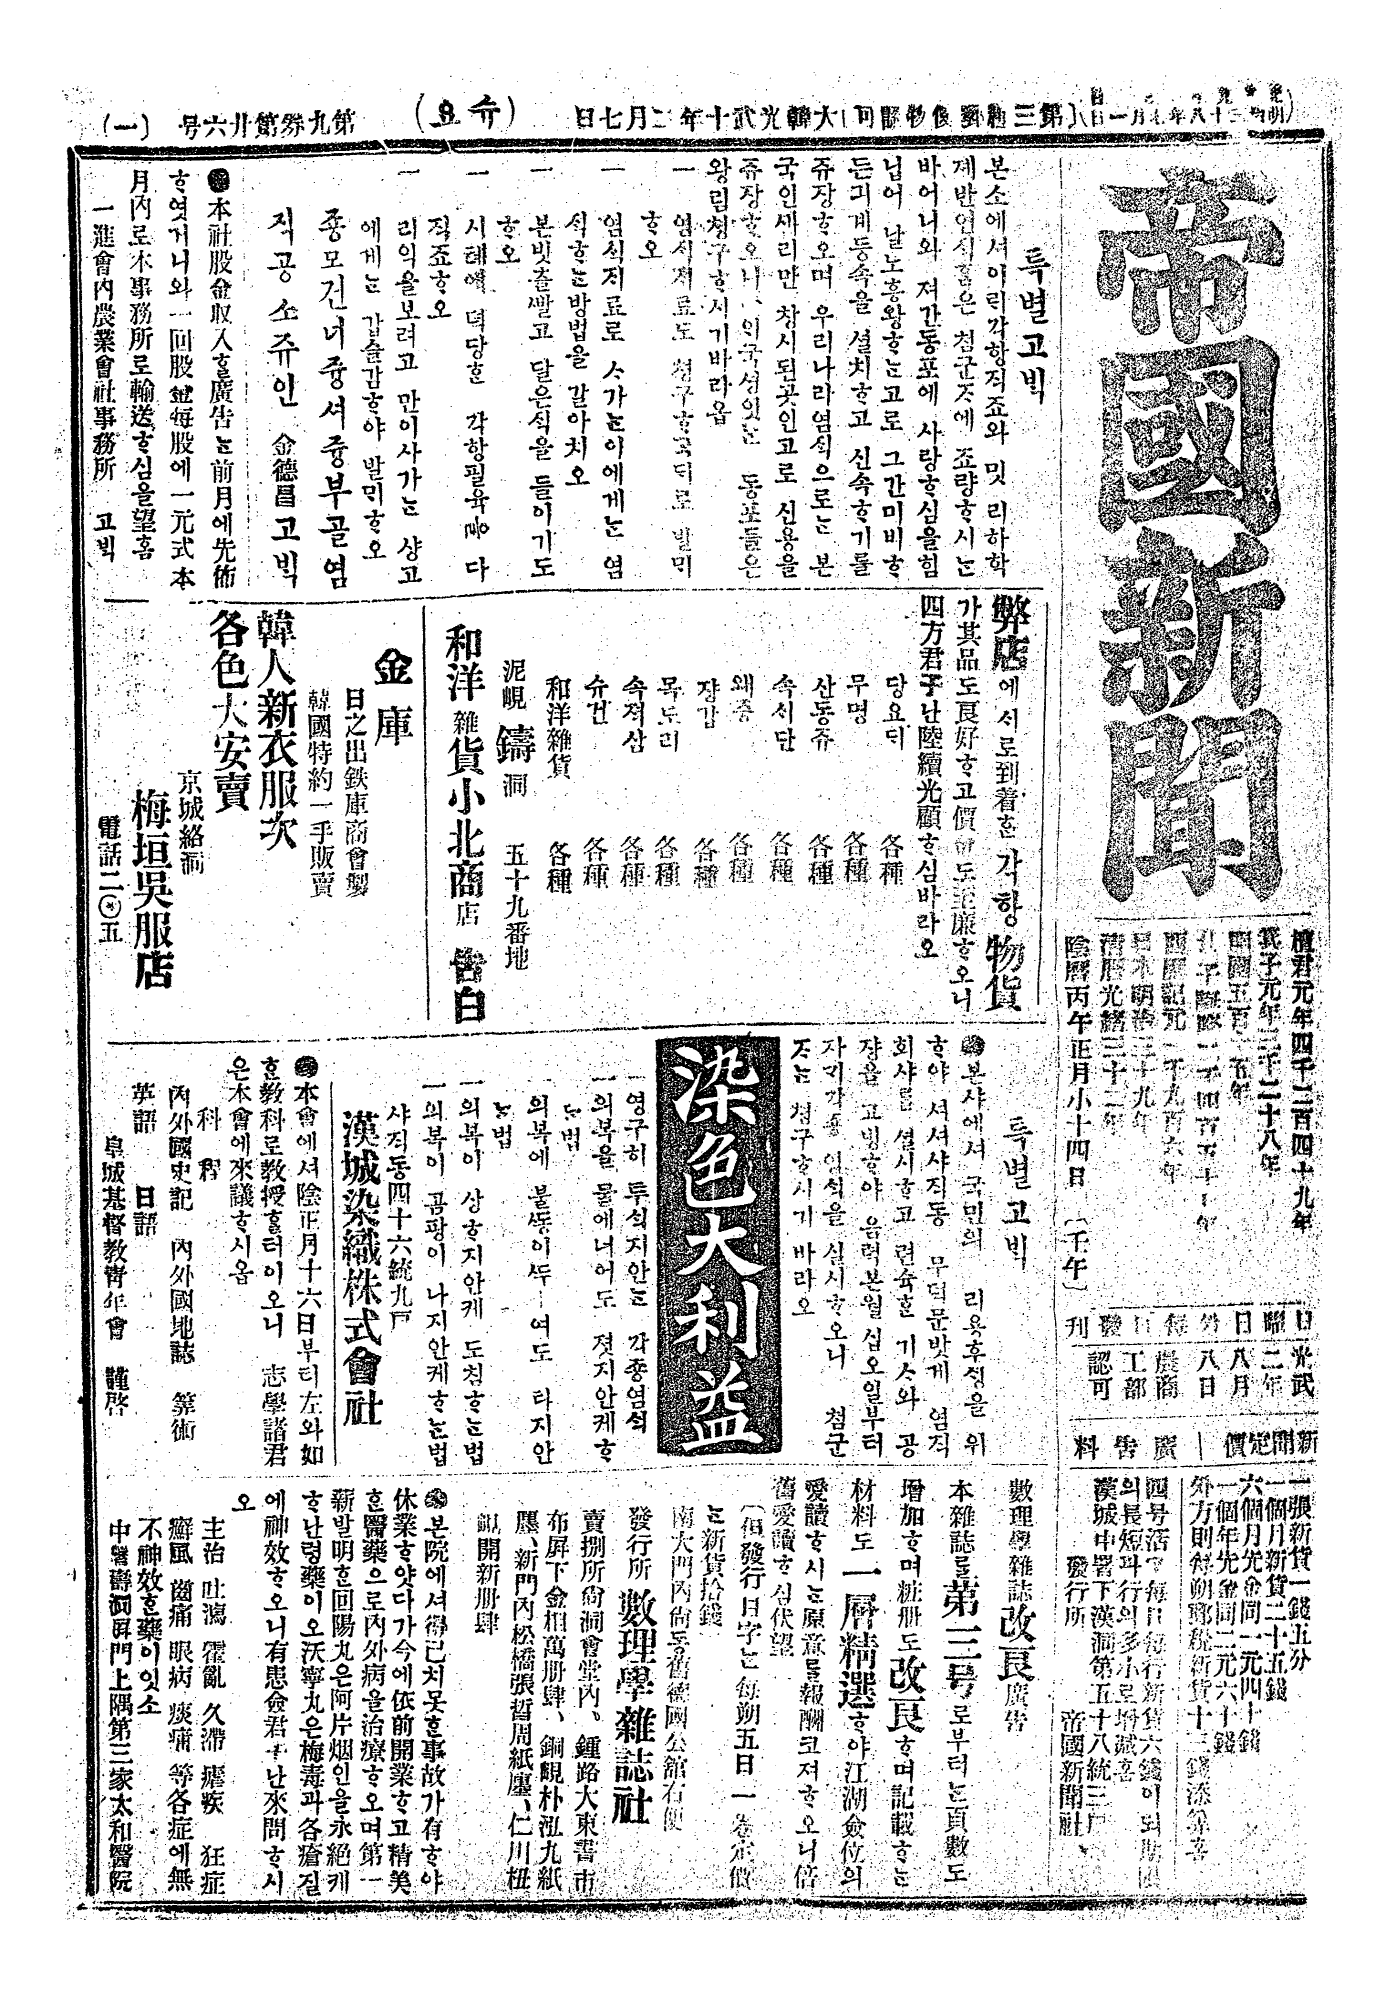 大韓光武十年二月七日
(슈요)
第九券第廿六号
(一)
帝國新聞
檀君元年四千二百四十九年
箕子元年三千二十八年
淸曆光緖三十二年
陰曆丙午正月小十四日 (壬午)
新聞定價
一張新貨一錢五分
一個月新貨二十五錢
六個月先金同一元四十錢
一個年先金同二元六十錢
廣告料
漢城中署下漢洞第五十八統三戶
發行所 帝國新聞社
특별고빅
납어 날노흥왕ᄒᆞᄂᆞᆫ고로 그간미비ᄒᆞ
든긔계등속을 셜치ᄒᆞ고 신속ᄒᆞ기를
쥬장ᄒᆞ오며 우리나라염식으로ᄂᆞᆫ 본
국인세리만 창시된곳인고로 신용을
왕림쳥구ᄒᆞ시기바라옵
ᄒᆞ오
一 염식지료로 ᄉᆞ가ᄂᆞᆫ이에게ᄂᆞᆫ 염
식ᄒᆞᄂᆞᆫ방법을 갈아치오
一 본빗츨ᄲᅡᆯ고 달은식을 들이기도
ᄒᆞ오
一 시톄에 덕당ᄒᆞᆫ 각항필육 다
직죠ᄒᆞ오
一 리익을보려고 만이사가ᄂᆞᆫ 샹고
에게ᄂᆞᆫ 갑슬감ᄒᆞ야 발ᄆᆡᄒᆞ오
죵모건너즁셔즁부골염
직공소쥬인 金德昌고빅
本社股金収入ᄒᆞᆯ廣告ᄂᆞᆫ前月에先佈
ᄒᆞ엿거니와一回股金每股에一元式本
月內로本事務所로輸送ᄒᆞ심을望홈
一進會內農業會社事務所 고빅
弊店에서로到着ᄒᆞᆫ 각항物貨
가其品도良好ᄒᆞ고價ᄭᅡ도至廉ᄒᆞ오니
四方君子ᄂᆞᆫ陸續光顧ᄒᆞ심바라오
당요ᄃᆡ 各種
무명 各種
산동쥬 各種
속셔단 各種
왜증 各種
쟝갑 各種
목도리 各種
속젹삼 各種
슈건 各種
和洋雜貨 各種
泥峴 鑄洞 五十九番地
和洋雜貨小北商店 告白
金庫
日之出鉄庫商會製
韓國特約一手販賣
韓人新衣服次
各色大安賣
京城絡洞
梅垣吳服店
電話二〇五
특별고빅
본샤에셔 국민의 리용후ᄉᆡᆼ을 위
ᄒᆞ야 셔셔샤직동 무덕문밧게 염직
회샤를 셜시ᄒᆞ고 련슉ᄒᆞᆫ 기ᄉᆞ와 공
쟝을 고빙ᄒᆞ야 음력본월십오일부터
ᄌᆞᄂᆞᆫ 쳥구ᄒᆞ시기 바라오
染色大利益
一영구히 투식지안ᄂᆞᆫ 각죵염식
一의복을 물에너어도 졋지안케ᄒᆞ
ᄂᆞᆫ법
一의복에 불ᄯᅩᆼ이ᄯᅱ여도 타지안
ᄂᆞᆫ법
一의복이 상ᄒᆞ지안케 도침ᄒᆞᄂᆞᆫ법
一의복이 곰팡이 나지안케ᄒᆞᄂᆞᆫ법
샤직동四十六統九戶
漢城染織株式會社
本會에셔陰正月十六日부터左와如
ᄒᆞᆫ敎科로敎授ᄒᆞᆯ터이오니 志學諸君
은本會에來議ᄒᆞ시옵
科程
內外國史記 內外國地誌 筭術
英語 日語
皇城基督敎靑年會 謹啓
數理學雜誌改良廣告
本雜誌를第三号로부터ᄂᆞᆫ頁數도
增加ᄒᆞ며粧册도改良ᄒᆞ며記載ᄒᆞᄂᆞᆫ
材料도 一層精選ᄒᆞ야江湖僉位의
愛讀ᄒᆞ시ᄂᆞᆫ原意를報酬코져ᄒᆞ오니倍
舊愛讀ᄒᆞ심伏望
(但發行日字ᄂᆞᆫ每朔五日 一卷定價
ᄂᆞᆫ新貨拾錢
南大門內尙동舊德國公舘右便
發行所 數理學雜誌社
賣捌所尙洞會堂內、鍾路大東書市
布屛下金相萬册肆、銅峴朴泓九紙
廛、新門內松橋張晢周紙廛、仁川杻
峴開新册肆
본院에셔得已치못ᄒᆞᆫ事故가有ᄒᆞ야
休業ᄒᆞ얏다가今에依前開業ᄒᆞ고精美
ᄒᆞᆫ醫藥으로內外病을治療ᄒᆞ오며第一
新발明ᄒᆞᆫ回陽丸은阿片烟인을永絶케
ᄒᆞᄂᆞᆫ령藥이오沃寧丸은梅毒과各瘡질
에神效ᄒᆞ오니有患僉君子ᄂᆞᆫ來問ᄒᆞ시
오
主治 吐瀉 霍亂 久滯 瘧疾 狂症
癬風 齒痛 眼病 痰痛 等各症에無
不神效ᄒᆞᆫ藥이잇소
中署壽洞屛門上隅第三家太和醫院